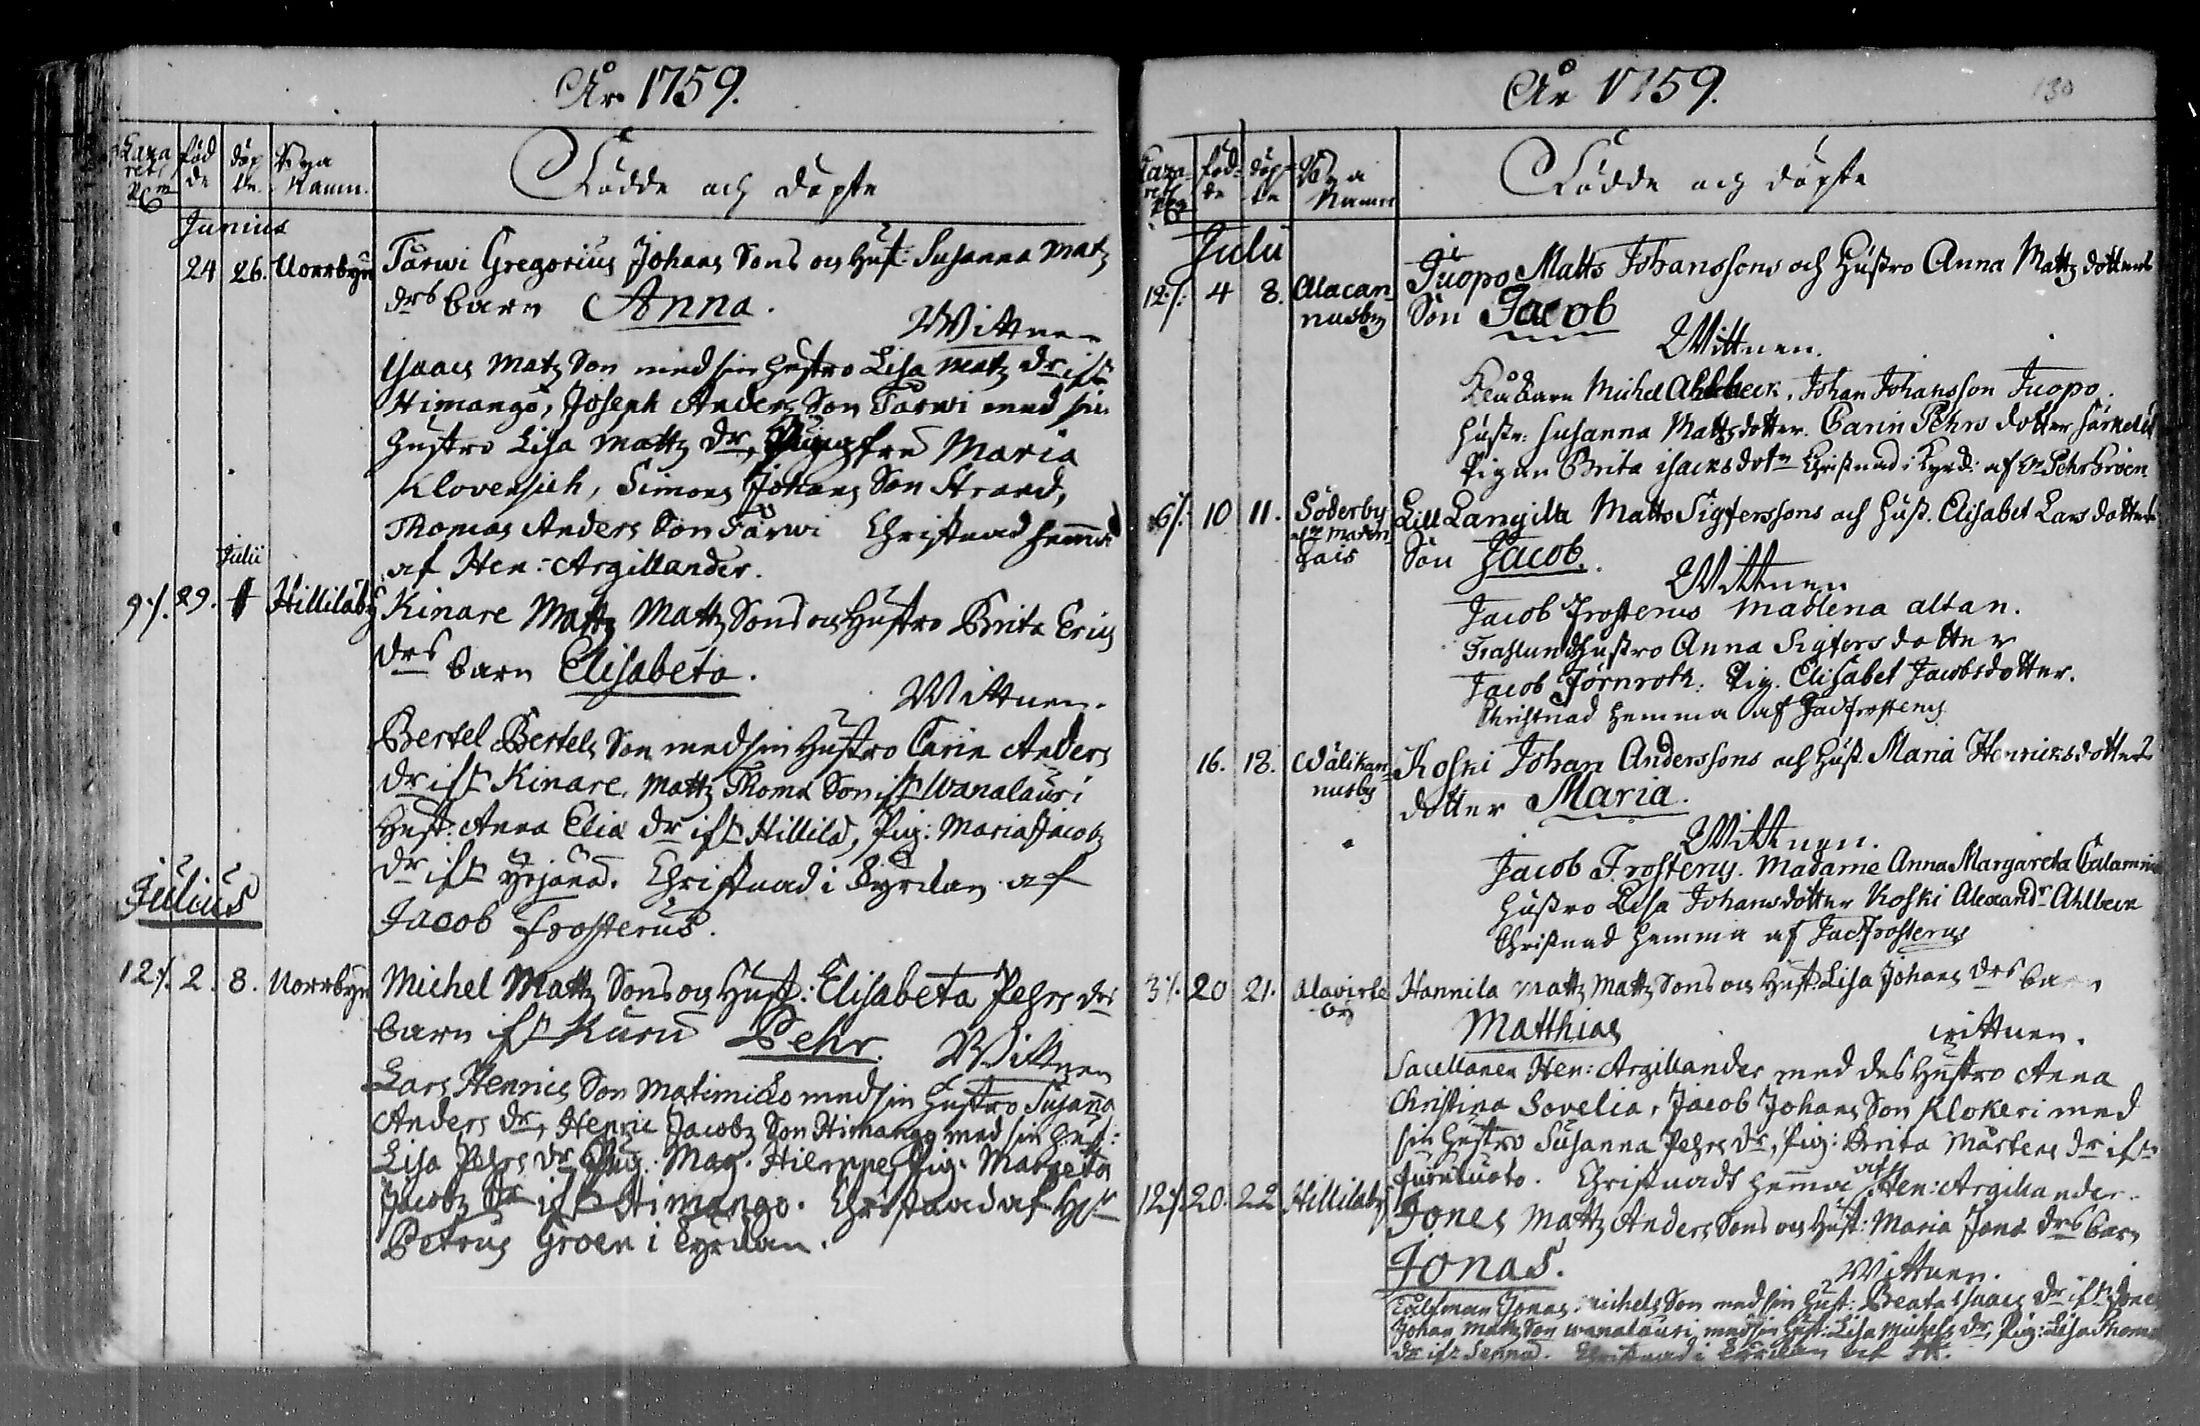 År 1759.
föd
de
döp
te.
Bya
Namn.
Födde och döpte
Junius
24 26. Norrbyn Tarwi Gregorius Johans Sons och Hust: Susanna Matz
drs barn Anna.
Wittnen
Isaacs Matz Son med sin Hustro Lisa Matz dr ifr
Himango, Joseph Anders Son Tarwi med sin
Hustro Lisa Mattz dr, Maria
Simons Johans Son Strand,
Thomas Anders Son Tarwi Christnad hemma
af Hen: Argillander.
Julii
9./. 29. 1 Hillilaby Kinare Mattz Mattz Sons och Hustro Brita Erics
drs barn Elisabeta.
Wittnen.
Bertel Bertels Son med sin Hustro Carin Anders
dr ifr Kinare. Mattz Thomæ Son ifr Wanalauri
Hust: Anna Eliæ dr ifr Hillilä, Pig: Maria Jacobz
dr ifr Yrjänä. Christnad i Kyrckan af
Jacob Frosterus.
Julius
12./. 2. 8. Norrbyn Michel Mattz Sons och Hust: Elisabeta Pehrs drs
barn ifr Kuru Pehr. Wittnen
Lars Henrics Son med sin Hustro Susanna
Anders dr, Henric Jacobz Son Himango med sin Hust:
Lisa Pehrs dr, Pig: Mag. Pig: Margeta
Jacobz dr ifr Himango. Christnad af Hr
Petrus Groen i Kyrckan.
År 1759.
130
föd=
de
döp=
te
Bya
Namn
Födde och döpte
Julii
12./. 4 8. Alacan=
nusby
Juopo Matts Johanssons och Hustro Anna Mattz dotters
Son Jacob
Wittnen.
Michel Ahlbeck, Johan Johansson Juopo.
Hustr: Susanna Mattsdotter. Carin Pehrs dotter
Pigan Brita Isacksdotr Christnad i Kyrck: af Hr Pehr Gröen
6./. 10 11. Söderby
Lill Langilla Matts Sigferssons och Hust. Elisabet Lars dotters
Son Jacob.
Wittnen
Jacob Frosterus Madlena altan.
Hustro Anna Sigfersdotter
Jacob Förnroth. Pig. Elisabet Jacobsdotter.
Christnad hemma af Jac Frosterus
16. 18. Wälikan=
nusby
Koski Johan Anderssons och Hust Maria Henricksdotters
dotter Maria.
Wittnen.
Jacob Frosterus. Madame Anna Margareta
Hustro Lisa Johansdotter Koski Alexandr Ahlbeck
Christnad hemma af Jac Frosterus
3./. 20 21. Alavirte
by
Hannila Mattz Mattz Sons och Hust: Lisa Johans drs barn
Matthias wittnen.
Sacellanen Hen: Argillander med des Hustro Anna
Christina Sovelia, Jacob Johans Son Klockeri med
sin Hustro Susanna Pehrs dr, Pig: Brita Mårtens dr ifr
Christnadt hemma af Hen: Argillander.
12./. 20. 22 Hillilaby
Jones Mattz Anders Sons och Hust: Maria Jonæ drs barn
Jonas. Wittnen.
Jonas Michels Son med sin Hust: Beata Isaacs dr ifr Jones
Johan Mattz Son Wanalauri med sin Hust: Lisa Michels dr, Pig: Lisa Thomæ
dr ifr Christnad i Kyrckan af